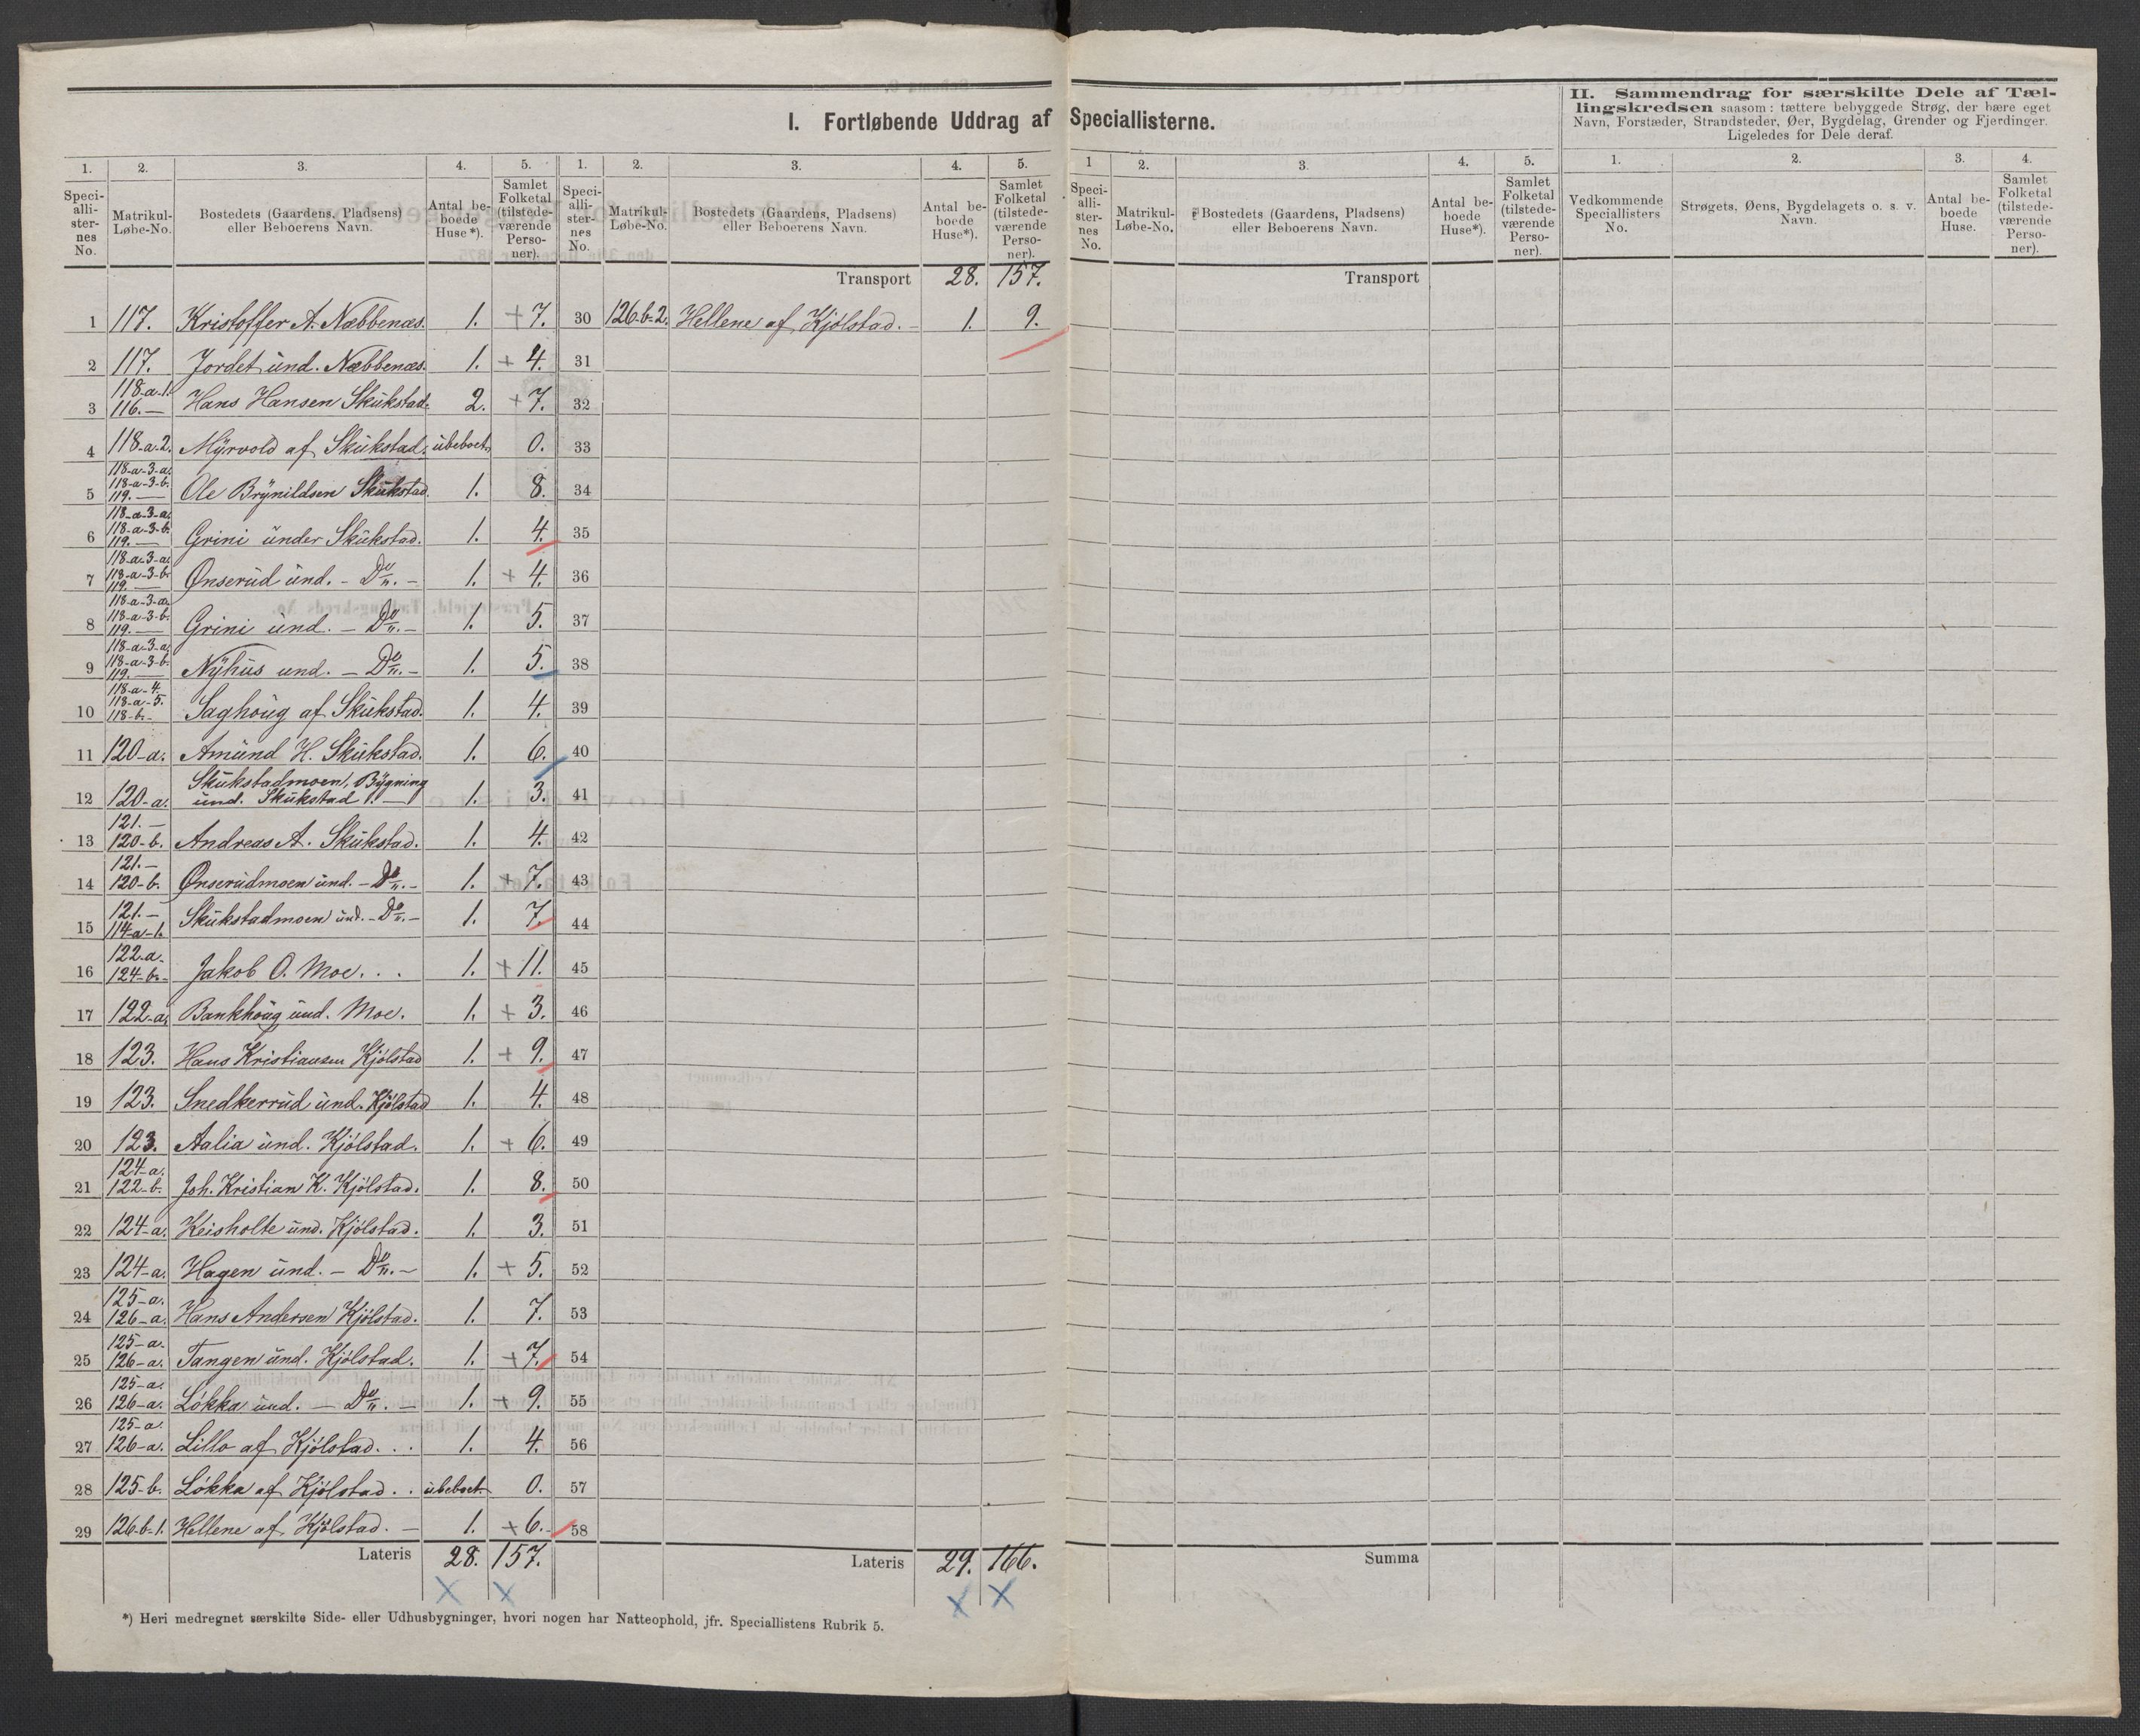 I. Fortløbende Uddrag af Speciallisterne.
II. Sammendrag for særskilte Dele af Tæl-
lingskredsen saasom: tættere bebyggede Strøg, der bære eget
Navn, Forstæder, Strandsteder, Øer, Bygdelag, Grender og Fjerdinger.
Ligeledes for Dele deraf.
1. 2. 3. 4. 5. 1. 2. 3. 4. 5. 1 2. 3. 4. 5. 1. 2. 3. 4.
Speciallisternes No. Matrikul-Løbe-No. Bostedets (Gaardens, Pladsens) eller Beboerens Navn. Antal beboede Huse*). Samlet Folketal (tilstedeværende Personer).
Speciallisternes No. Matrikul-Løbe-No. Bostedets (Gaardens, Pladsens) eller Beboerens Navn. Antal beboede Huse*). Samlet Folketal (tilstedeværende Personer).
Speciallisternes No. Matrikul-Løbe-No. Bostedets (Gaardens, Pladsens) eller Beboerens Navn. Antal beboede Huse*). Samlet Folketal (tilstedeværende Personer).
Vedkommende Speciallisters No. Strøgets, Øens, Bygdelagets o. s. v. Navn. Antal beboede Huse. Samlet Folketal (tilstedeværende Personer).
Transport 28. 157. Transport
1 117. Kristoffer A. Næbbenæs. 1. + 7. 30 126-b-2. Hellene af Kjölstad. – 1. 9.
2 117. Jordet und. Næbbenæs. 1. + 4. 31
3 118-a-1. 116. — Hans Hansen Skukstad. 2. + 7. 32
4 118-a-2. Myrvold af Skukstad. ubeboet. 0. 33
5 118-a-3-a. 118-a-3-b. 119. — Ole Brynildsen Skukstad. 1. 8. 34
6 118-a-3-a. 118-a-3-b. 119. — Grini under Skukstad. 1. 4. 35
7 118-a-3-a. 118-a-3-b. 119. — Onserud und. – Do. – 1. + 4. 36
8 118-a-3-a. 118-a-3-b. 119. — Grini und. – Do. – 1. 5. 37
9 118-a-3-a. 118-a-3-b. 119. — Nyhus und. – Do. – 1. 5. 38
10 118-a-4. 118-a-5. 118-b. – Saghoug af Skukstad. 1. 4. 39
11 120-a. Amund H. Skukstad. 1. 6. 40
12 120-a. Skukstadmoen, Bygning und. Skukstad. — 1. 3. 41
13 121. – 120-b. Andreas A. Skukstad. 1. 4. 42
14 121. – 120-b. Onserudmoen und. – Do. – 1. + 7. 43
15 121. – 114-a-1. Skukstadmoen und. – Do. – 1. 7. 44
16 122-a. 124-b. – Jakob O. Moe. . . 1. + 11. 45
17 122-a. Bankhoug und. Moe. 1. + 3. 46
18 123. Hans Kristiansen Kjölstad 1. + 9. 47
19 123. Snedkerrud und. Kjölstad 1. 4. 48
20 123. Aalia und. Kjölstad. 1. + 6. 49
21 124-a. 122-b. Joh. Kristian K. Kjölstad. 1. 8. 50
22 124-a. Keisholte und. Kjölstad. 1. 3. 51
23 124-a. Hagen und. – Do. – 1. + 5. 52
24 125-a. 126-a. Hans Andersen Kjölstad. 1. 7. 53
25 125-a. 126-a. Tangen und. Kjölstad. 1. + 7. 54
26 125-a. 126-a. Lökka und. – Do. – 1. + 9. 55
27 125-a. 126-a. Lillo af Kjölstad. . . 1. 4. 56
28 125-b. Lökka af Kjölstad. . ubeboet. 0. 57
29 126-b-1. Hellene af Kjölstad. – 1. + 6. 58
Lateris 28. 157. Lateris 29. 166. Summa
*) Heri medregnet særskilte Side- eller Udhusbygninger, hvori nogen har Natteophold, jfr. Speciallistens Rubrik 5.